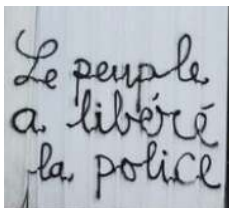 Le peuple
a libéré
la police